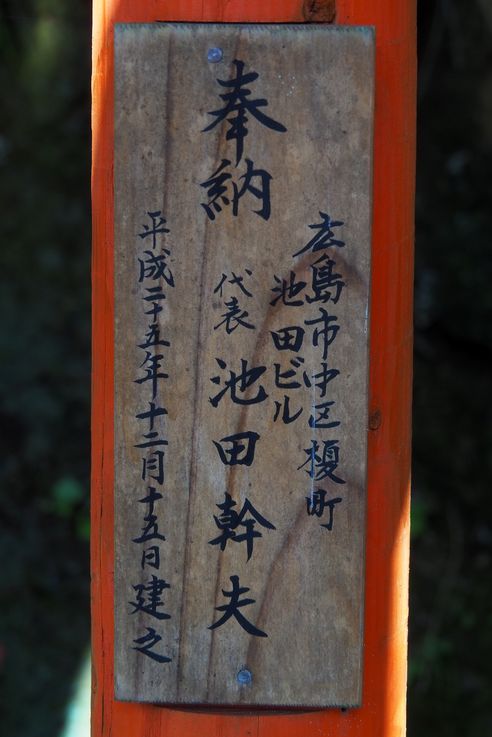 奉納
広島市中区榎町
池田ビル
代表 池田幹夫
平成二十五年十二月十五日建之